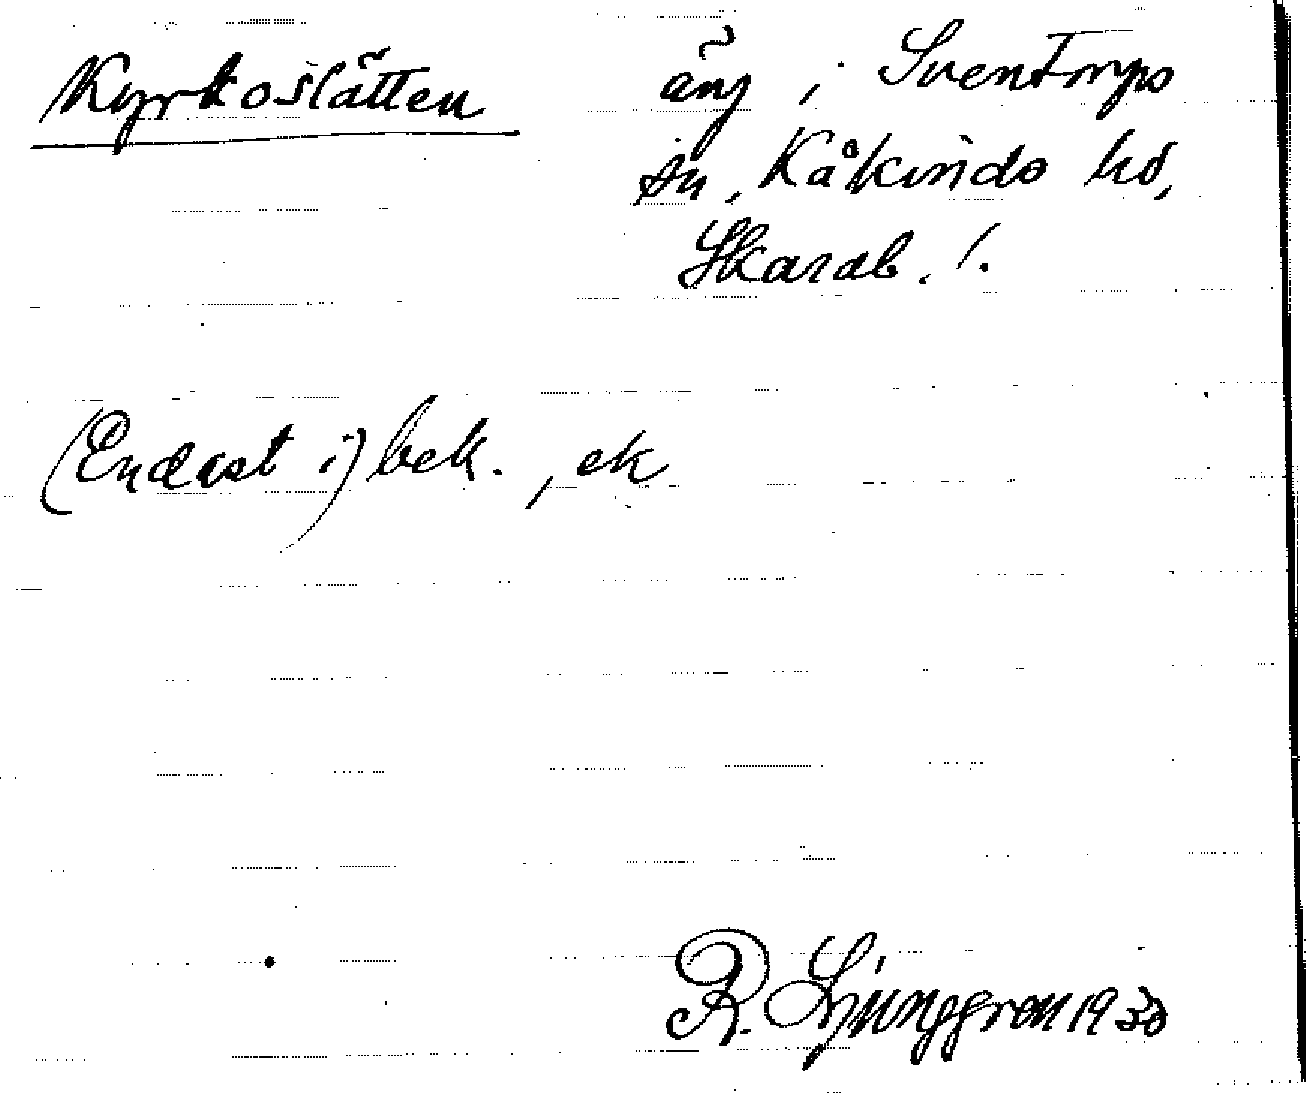 Kyrkoslätten
äng i Sventorps
sn, Kåkinds hd,
Skarab. l.
(Endast i) bek., ek
R. Ljunggren 1930